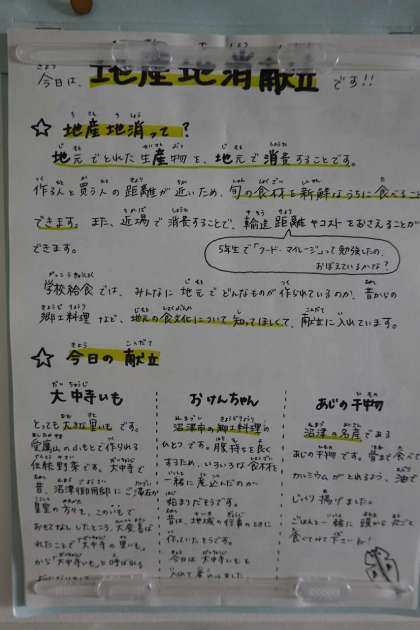 今日は、地産地消献立です!!
☆ 地産地消って?
地元でとれた生産物を、地元で消費することです。
作る人と買う人の距離が近いため、旬の食材を新鮮なうちに食べること
できます。また、近場で消費することで、輸送距離やコストをおさえることが
できます。
5年生で「フード・マイレージ」って勉強したの、
おぼえているかな?
学校給食では、みんなに地元でどんなものが作られているのか、昔からの
郷土料理など、地元の食文化について知ってほしくて、献立に入れています。
☆ 今日の献立
大中寺いも
とっても大きな里いもです。
愛鷹山のふもとで作られる
伝統野菜です。大中寺で
昔、沼津御用邸に
皇室の方々を、このいもで
おもてなししたところ、大変喜ば
れたことで「大中寺の里いも」
から「大中寺いも」と呼ばれる
おけんちゃん
沼津市の郷土料理の
ひとつです。腹持ちを良く
するため、いろいろな食材を
一緒に煮込んだのが
始まりだそうです。
昔は、地域の行事のときに
作っていたそうです。
今日は大中寺いもも
入れて煮こみました
あじの干物
沼津の名産である
あじの干物です。骨まで食べて
カルシウムがとれるよう、油で
じっくり揚げました。
ごはんと一緒に頭から丸ごと
食べてみて下さいね!